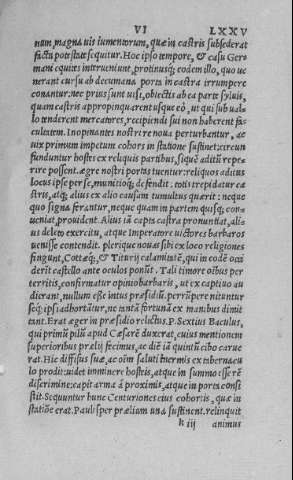 VI LXXV
num, magna uis iumentorum, quæ in castris subsederat
factu potestate sequitur. Hoc ipso tempore, & casu Ger
mani equites interueniunt, protinusq; eodem illo, quo ue
nerant cursu ab decumana porta in castra irrumpere
conantur. nec prius sunt uisi, obiectis ab ea parte syluis,
quam castris appropinquarent usque eò, ut qui sub ual-
lo tenderent mercatores, recipiendi sui non haberent fa-
cultatem. Inopinantes nostri re noua perturbantur, ac
uix primum impetum cohors in statione sustinet: circun
funduntur hostes ex reliquis partibus, siquē aditū repe-
rire possent. ægre nostri portas tuentur: reliquos aditus
locus ipse per se, munitioq; defendit: totis trepidatur ca
stris, atq; alius ex alio causam tumultus quærit: neque
quo signa ferantur, neque quam in partem quisq; con-
ueniat, prouident. Alius iā capta castra pronuntiat, ali
us deleto exercitu, atque Imperatore uictores barbaros
uenisse contendit. plerique nouas sibi ex loco religiones
fingunt, Cottæq; & Titurij calamitatē, qui in eodē occi
derīt castello ante oculos ponūt. Tali timore oībus per
territis, confirmatur opinio barbaris, ut ex captiuo au
dierant, nullum esse intus præsidiū. perrūpere nituntur
seq; ipsi adhortātur, ne tantā fortunā ex manibus dimit
tant. Erat æger in præsidio relictus. P. Sextius Baculus,
qui primū pilū apud Cæsarē duxerat, cuius mentionem
superioribus prælijs fecimus, ac diē iā quintū cibo carue
rat. Hic diffisus suæ, ac oīm saluti inermis ex tabernacu
lo prodit: uidet imminere hostis, atque in summo esse rē
discrimine: capit arma à proximis, atque in porta consi
stit. Sequuntur hunc Centuriones eius cohortis, quæ in
statiōe erat. Paulisper præliam unà sustinent. relinquit
k iij animus